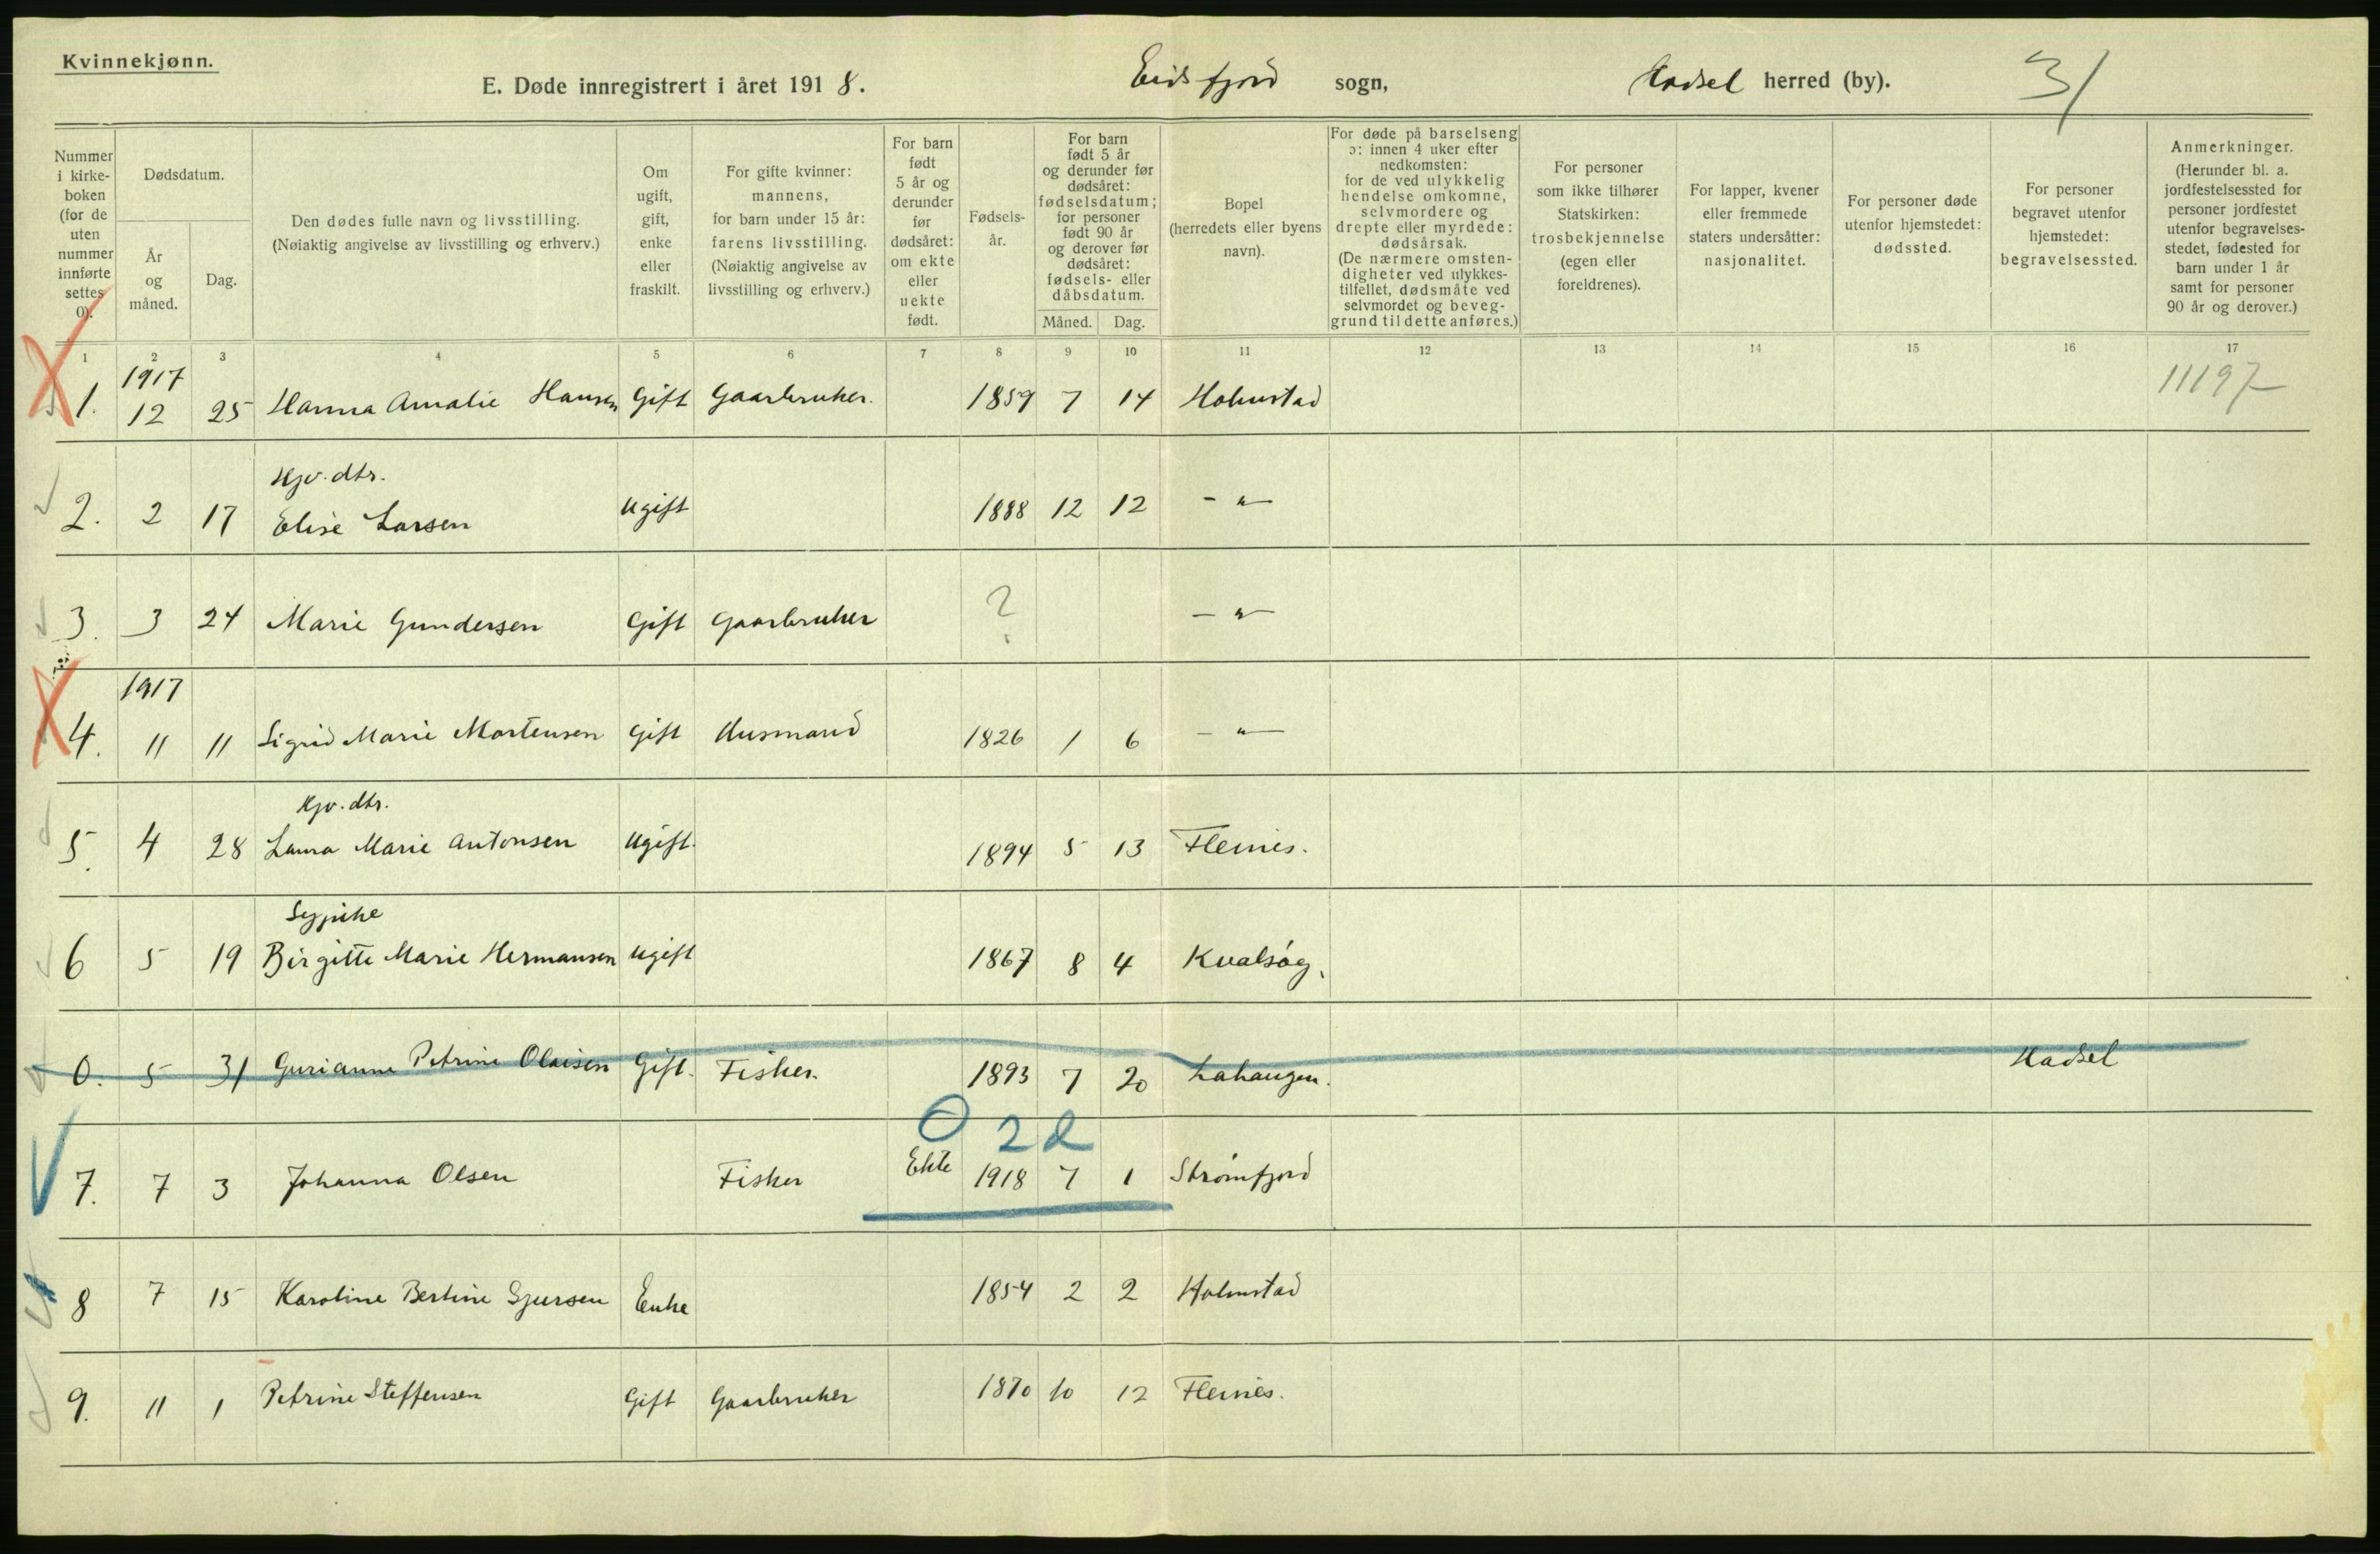 Kvinnekjønn.
E. Døde innregistrert i året 1918. Eidsfjord sogn, Hadsel herred (by). 31
Nummer i kirke-boken (for de uten nummer innførte settes 0).
Dødsdatum.
År og måned.
Dag.
Den dødes fulle navn og livsstilling.
(Nøiaktig angivelse av livsstilling og erhverv.)
Om ugift, gift, enke eller fraskilt.
For gifte kvinner: mannens, for barn under 15 år: farens livsstilling. (Nøiaktig angivelse av livsstilling og erhverv.)
For barn født 5 år og derunder før dødsåret: om ekte eller uekte født.
Fødsels-år.
For barn født 5 år og derunder før dødsåret: fødselsdatum; for personer født 90 år og derover før dødsåret: fødsels- eller dåbsdatum.
Måned. Dag.
Bopel (herredets eller byens navn).
For døde på barselseng ɔ: innen 4 uker efter nedkomsten: for de ved ulykkelig hendelse omkomne, selvmordere og drepte eller myrdede: dødsårsak. (De nærmere omsten-digheter ved ulykkes-tilfellet, dødsmåte ved selvmordet og beveg-grund til dette anføres.)
For personer som ikke tilhører Statskirken: trosbekjennelse (egen eller foreldrenes).
For lapper, kvener eller fremmede staters undersåtter: nasjonalitet.
For personer døde utenfor hjemstedet: dødssted.
For personer begravet utenfor hjemstedet: begravelsessted.
Anmerkninger. (Herunder bl. a. jordfestelsessted for personer jordfestet utenfor begravelses-stedet, fødested for barn under 1 år samt for personer 90 år og derover.)
1 2 3 4 5 6 7 8 9 10 11 12 13 14 15 16 17
1917
1. 12 25 Hanna Amalie Hansen Gift Gaarbruker. 1859 7 14 Holmstad 11197
Gjv. dtr.
2. 2 17 Elise Larsen Ugift 1888 12 12 - " -
3. 3 24 Marie Gundersen Gift Gaarbruker ? - " -
1917
4. 11 11 Sigrid Marie Mortensen Gift Husmand 1826 1 6 - " -
Gjv. dtr.
5. 4 28 Laura Marie Antonsen Ugift. 1894 5 13 Fleines.
Sypike
6 5 19 Birgitte Marie Hermansen Ugift 1867 8 4 Kvalsøg.
0. 5 31 Gurianne Petrine Olaisen Gift. Fisker. 1893 7 20 Lahaugen. Hadsel
0 2 d
7. 7 3 Johanna Olsen Fisker Ekte 1918 7 1 Strømfjord
8 7 15 Karoline Bertine Sjursen Enke 1854 2 2 Holmstad
9. 11 1 Petrine Steffensen Gift Gaarbruker 1870 10 12 Fleines.